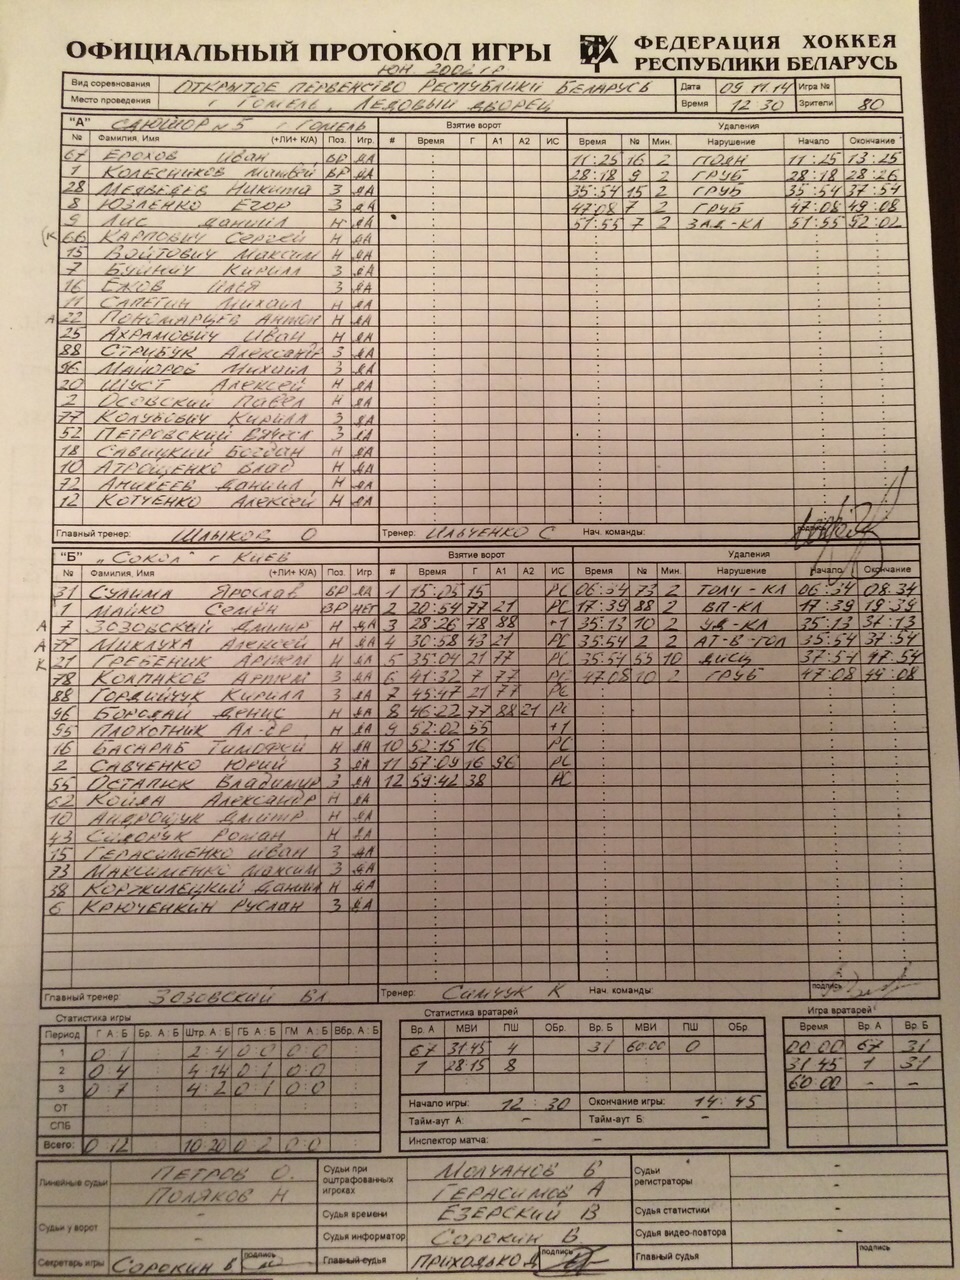 ОФИЦИАЛЬНЫЙ ПРОТОКОЛ ИГРЫ ФЕДЕРАЦИЯ ХОККЕЯ
РЕСПУБЛИКИ БЕЛАРУСЬ
ЮН. 2002 г.р.
Вид соревнования ОТКРЫТОЕ ПЕРВЕНСТВО РЕСПУБЛИКИ БЕЛАРУСЬ Дата 09.11.14 Игра №
Место проведения г. ГОМЕЛЬ, ЛЕДОВЫЙ ДВОРЕЦ Время 12 30 Зрители 80
"А" СДЮШОР №5 г ГОМЕЛЬ Взятие ворот Удаления
№ Фамилия, Имя (+ЛИ+ К/А) Поз. Игр. # Время Г А1 А2 ИС Время № Мин. Нарушение Начало Окончание
67 ЕРОХОВ Иван ВР ДА 11:25 16 2 11:25 13:25
1 КОЛЕСНИКОВ Матвей ВР ДА 28:18 9 2 ГРУБ 28:18 28:26
28 МЕДВЕДЕВ Никита З ДА 35:54 15 2 ГРУБ 35:54 37:54
8 ЮЗЛЕНКО ЕГОР З ДА 47:08 7 2 ГРУБ 47:08 49:08
9 ЛИС ДАНИИЛ Н ДА 51:55 7 2 ЗАД-КЛ 51:55 52:02
К 66 КАРПОВИЧ Сергей Н ДА
15 ВОЙТОВИЧ Максим Н ДА
7 БУЙНИЧ КИРИЛЛ З ДА
16 ЕЖОВ ИЛЬЯ З ДА
11 САПЕГИН Михаил Н ДА
А 22 ПОНОМАРЦЕВ АНТОН Н ДА
25 АХРАМОВИЧ Иван Н ДА
88 СТРИБУК Александр З ДА
96 МАЙОРОВ МИХАИЛ З ДА
20 ШУСТ АЛЕКСЕЙ Н ДА
2 ОСОВСКИЙ ПАВЕЛ Н ДА
77 КОЛУБОВИЧ КИРИЛЛ З ДА
52 ПЕТРОВСКИЙ З ДА
18 САВИЦКИЙ БОГДАН Н ДА
10 АТРОЩЕНКО ВЛАД Н ДА
72 АНИКЕЕВ ДАНИИЛ Н ДА
12 КОТЧЕНКО АЛЕКСЕЙ Н ДА
Главный тренер: ШЛЫКОВ О Тренер: ИЛЬЧЕНКО С Нач. команды: подпись
"Б" „СОКОЛ" г КИЕВ Взятие ворот Удаления
№ Фамилия, Имя (+ЛИ+ К/А) Поз. Игр. # Время Г А1 А2 ИС Время № Мин. Нарушение Начало Окончание
31 СУЛИМА ЯРОСЛАВ ВР ДА 1 15:05 15 РС 06:34 73 2 ТОЛЧ-КЛ 06:34 08:34
1 МАЙКО СЕМЁН ВР НЕТ 2 20:54 77 21 РС 17:39 88 2 ВП-КЛ 17:39 19:39
А 7 ЗОЗОВСКИЙ ДМИТР Н ДА 3 28:26 78 88 +1 35:13 10 2 УД-КЛ 35:13 37:13
А 77 МИКЛУХА АЛЕКСЕЙ Н ДА 4 30:58 43 21 РС 35:54 2 2 АТ-В-ГОЛ 35:54 37:54
К 21 ГРЕБЕНИК АРТЕМ Н ДА 5 35:04 21 77 РС 35:54 55 10 ДИСЦ 37:54 47:54
78 КОЛПАКОВ АРТЕМ З ДА 6 41:32 7 77 РС 47:08 10 2 ГРУБ 47:08 49:08
88 ГОРДИЙЧУК КИРИЛЛ З ДА 7 45:47 21 77 РС
96 БОРОДАЙ ДЕНИС Н ДА 8 46:22 77 88 21 РС
95 ПЛОХОТНИК АЛ-ДР Н ДА 9 52:02 55 +1
16 БАСАРАБ ТИМОФЕЙ Н ДА 10 52:15 16 РС
2 САВЧЕНКО ЮРИЙ З ДА 11 57:09 16 96 РС
55 ОСТАПЮК ВЛАДИМИР З ДА 12 59:42 38 РС
62 КОЙДА АЛЕКСАНДР Н ДА
10 АНДРОЩУК ДМИТР Н ДА
43 СИДОРУК РОМАН Н ДА
15 ГЕРАСИМЕНКО ИВАН З ДА
73 МАКСИМЕНКО МАКСИМ З ДА
38 КОРЖИЛЕЦКИЙ ДАНИИЛ Н ДА
6 КРЮЧЕНКИН РУСЛАН З ДА
Главный тренер: ЗОЗОВСКИЙ ВЛ Тренер: СИМЧУК К Нач. команды: подпись
Статистика игры Статистика вратарей Игра вратарей
Период Г А : Б Бр. А : Б Штр. А : Б ГБ А : Б ГМ А : Б Вбр. А : Б Вр. А МВИ ПШ ОБр. Вр. Б МВИ ПШ ОБр. Время Вр. А Вр. Б
1 0 1 2:4 0:0 0:0 67 31:45 4 31 60:00 0 00:00 67 31
2 0 4 4:14 0:1 0:0 1 28:15 8 31:45 1 31
3 0 7 4:2 0:1 0:0 60:00 – –
ОТ Начало игры: 12:30 Окончание игры: 14:45
СПБ Тайм-аут А: – Тайм-аут Б: –
Всего: 0 12 10:20 0:2 0:0 Инспектор матча: –
Линейные судьи ПЕТРОВ О. Судьи при оштрафованных игроках МОЛЧАНОВ В Судьи регистраторы –
ПОЛЯКОВ Н ГЕРАСИМОВ А –
Судьи у ворот – Судья времени ЕЗЕРСКИЙ В Судья статистики –
– Судья информатор СОРОКИН В Судья видео-повтора –
Секретарь игры СОРОКИН В подпись Главный судья ПРИХОДЬКО Д подпись Главный судья подпись